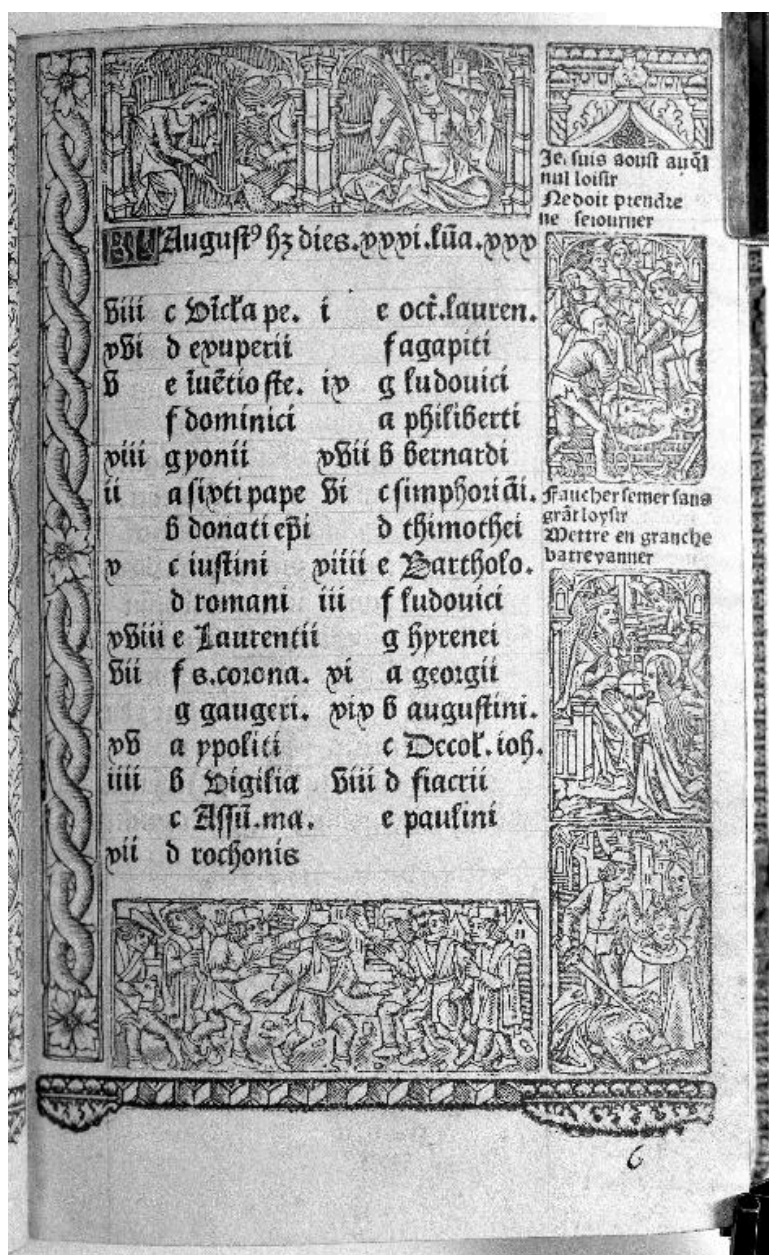 August⁹ hꝫ dies.xxxi.lũa.xxx
viii c Vĩcl'a pe.
xvi d exuperii
v e iuẽtio ste.
f dominici
xiii g yonii
ii a sixti pape
b donati ep̃i
x c iustini
d romani
xviii e Laurentii
vii f s.corona.
g gaugeri.
xv a ypoliti
iiii b Vigilia
c Assũ.ma.
xii d rochonis
i e oct̃.lauren.
f agapiti
ix g ludouici
a philiberti
xvii b bernardi
vi c simphoriãi.
d thimothei
xiiii e Bartholo.
iii f ludouici
g hyrenei
xi a georgii
xix b augustini.
c Decol'.ioh.
viii d fiacrii
e paulini
Je suis aoust auq̃l
nul loisir
Ne doit prendre
ne seiourner
Faucher semer sans
grãt loysir
Mettre en granche
batre vanner
6